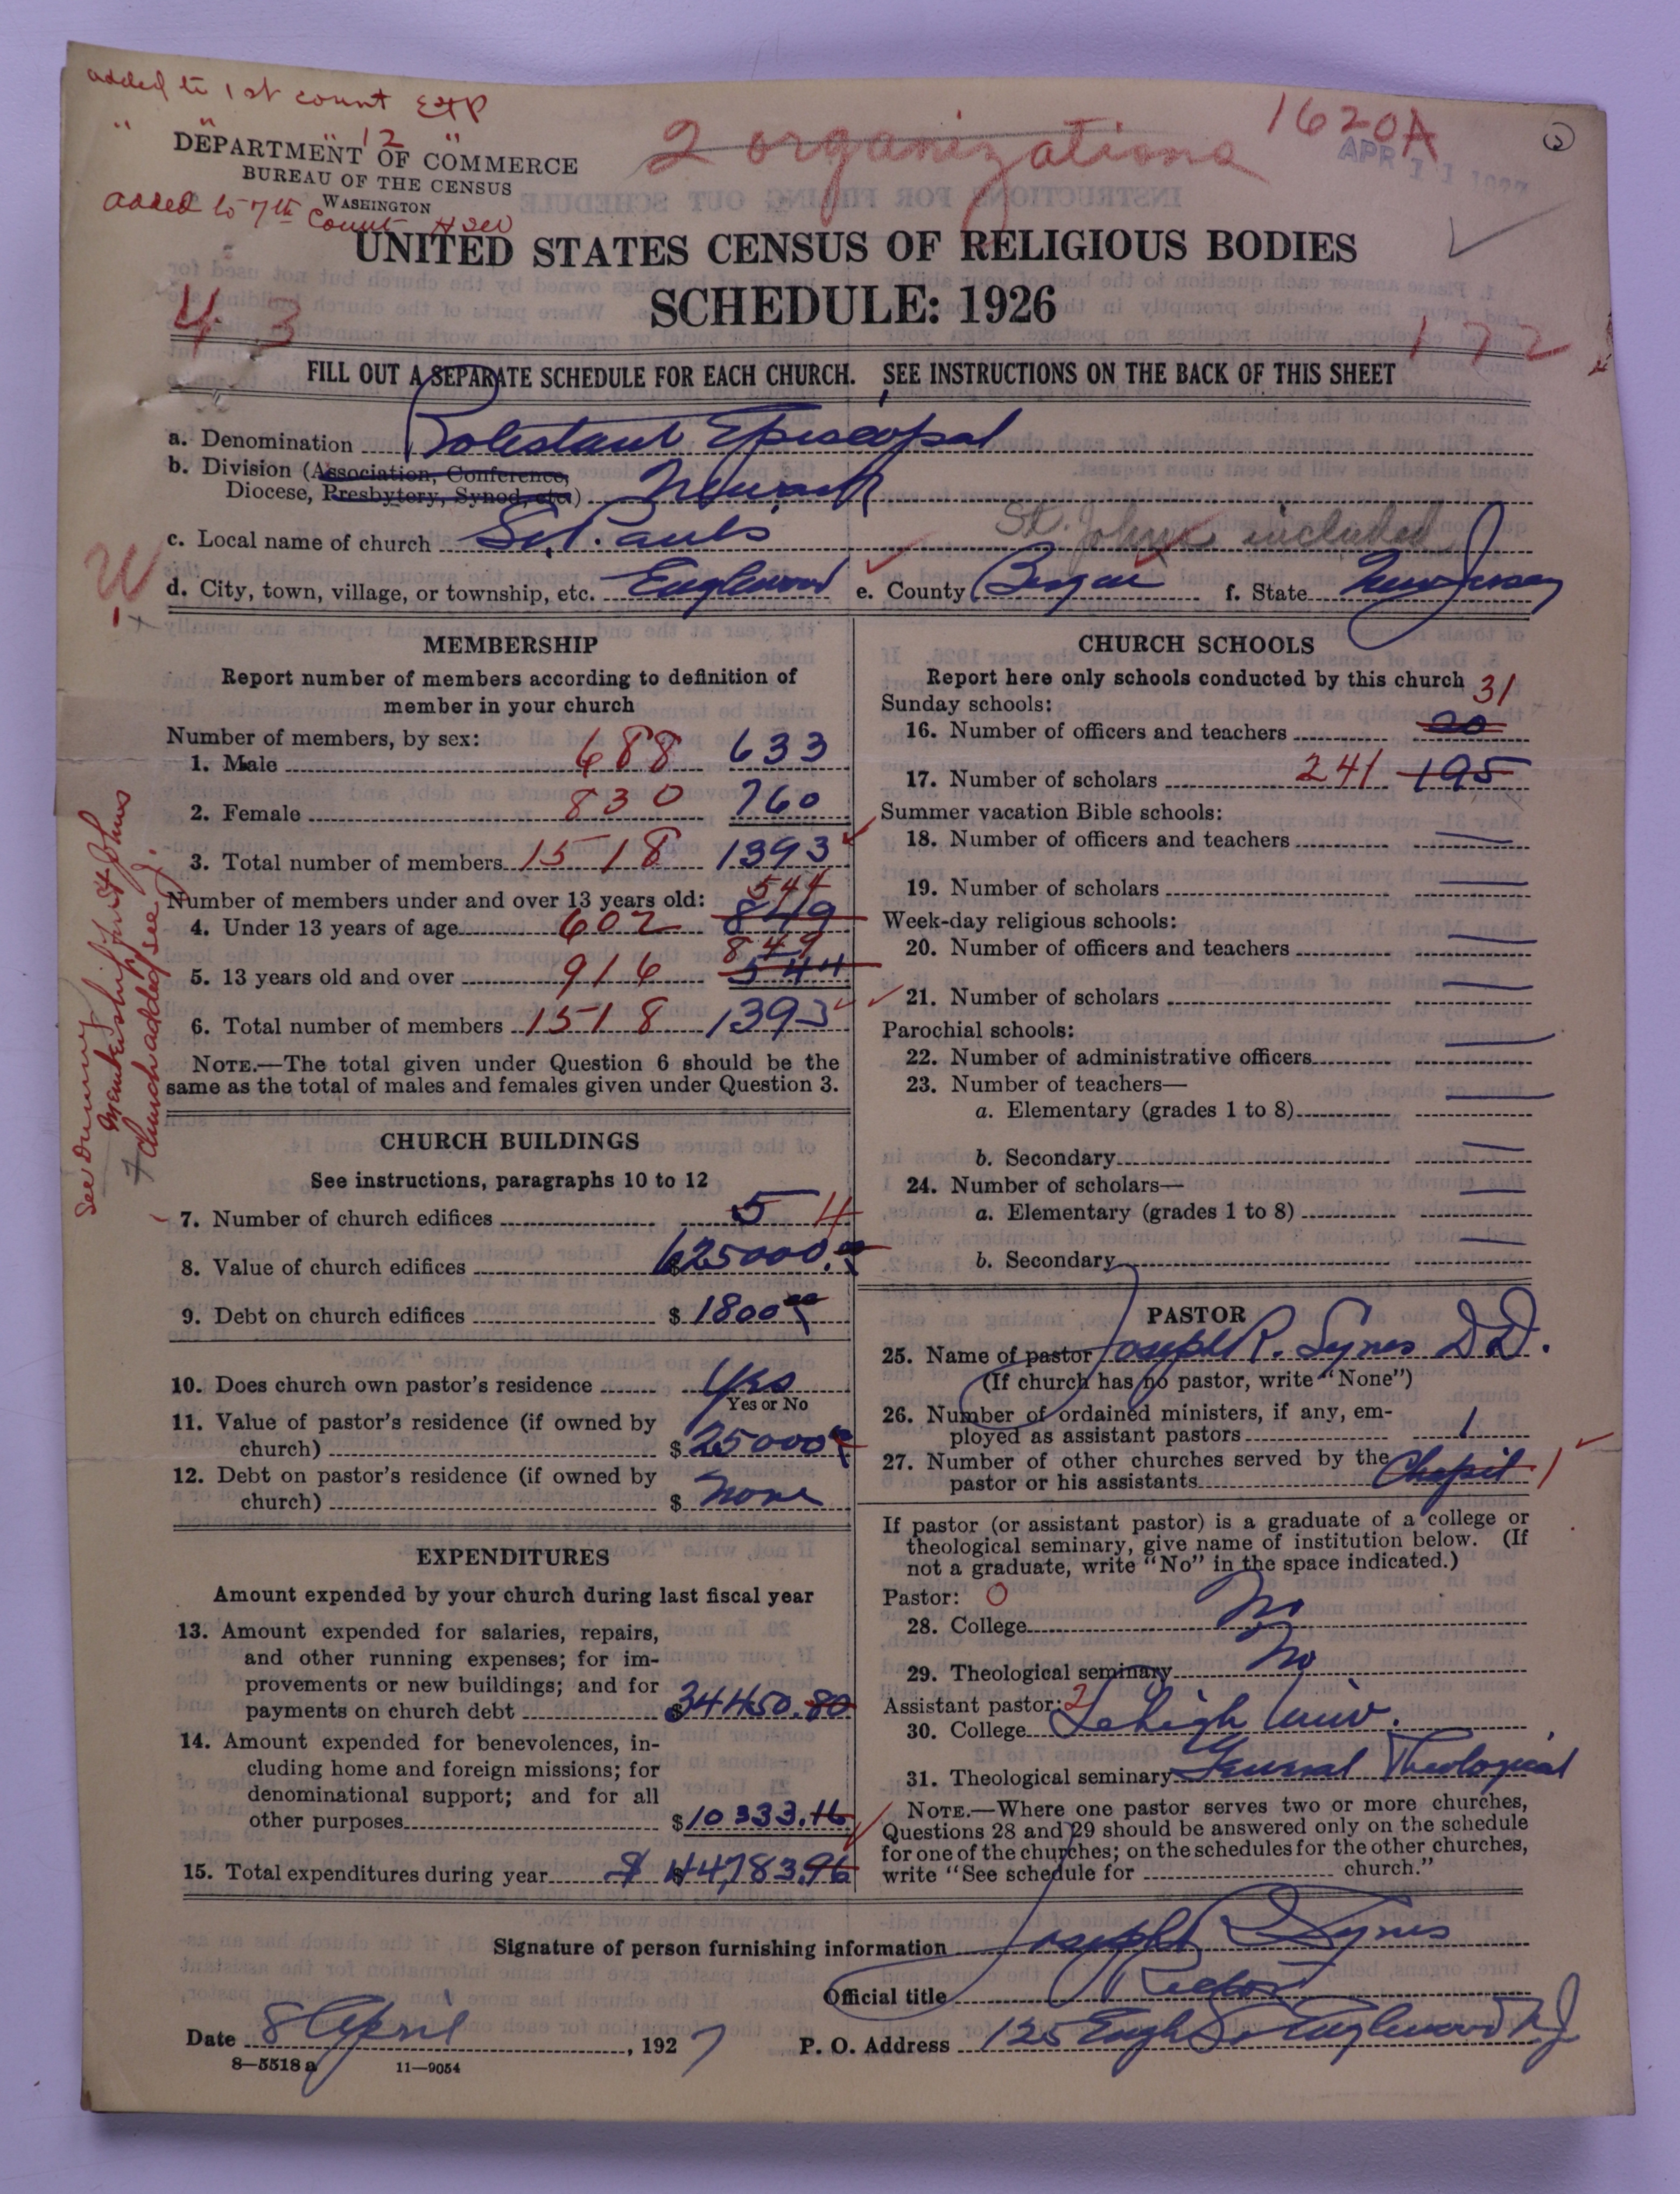 added to 1st count EXP
" " 12 "
2 organizations
1620A
APR 11 1927
DEPARTMENT OF COMMERCE
BUREAU OF THE CENSUS
WASHINGTON
added to 7th Count
UNITED STATES CENSUS OF RELIGIOUS BODIES
SCHEDULE: 1926
4 3
172
FILL OUT A SEPARATE SCHEDULE FOR EACH CHURCH. SEE INSTRUCTIONS ON THE BACK OF THIS SHEET
a. Denomination Protestant Episcopal
b. Division (Association, Conference,
Diocese, Presbytery, Synod, etc.) Newark
c. Local name of church St. Pauls St. Johns included
d. City, town, village, or township, etc. Englewood e. County Bergen f. State New Jersey
MEMBERSHIP
Report number of members according to definition of
member in your church
Number of members, by sex:
1. Male 688 633
2. Female 830 760
3. Total number of members 1518 1393
Number of members under and over 13 years old: 544
4. Under 13 years of age 602 849
849
5. 13 years old and over 916 544
6. Total number of members 1518 1393
NOTE.—The total given under Question 6 should be the
same as the total of males and females given under Question 3.
See Dummy
Membership for St Johns
Church added see J.
CHURCH BUILDINGS
See instructions, paragraphs 10 to 12
7. Number of church edifices 5 4
8. Value of church edifices $625000.00
9. Debt on church edifices $1800 00
10. Does church own pastor's residence Yes
Yes or No
11. Value of pastor's residence (if owned by
church) $25000 00
12. Debt on pastor's residence (if owned by
church) $ None
EXPENDITURES
Amount expended by your church during last fiscal year
13. Amount expended for salaries, repairs,
and other running expenses; for im-
provements or new buildings; and for
payments on church debt $34450.80
14. Amount expended for benevolences, in-
cluding home and foreign missions; for
denominational support; and for all
other purposes $10333.16
15. Total expenditures during year $ $44,783.96
CHURCH SCHOOLS
Report here only schools conducted by this church
Sunday schools: 31
16. Number of officers and teachers 20
17. Number of scholars 241 195
Summer vacation Bible schools:
18. Number of officers and teachers —
19. Number of scholars —
Week-day religious schools:
20. Number of officers and teachers —
21. Number of scholars —
Parochial schools:
22. Number of administrative officers —
23. Number of teachers—
a. Elementary (grades 1 to 8) —
b. Secondary —
24. Number of scholars—
a. Elementary (grades 1 to 8) —
b. Secondary —
PASTOR
25. Name of pastor Joseph R. Lynes D.D.
(If church has no pastor, write "None")
26. Number of ordained ministers, if any, em-
ployed as assistant pastors 1
27. Number of other churches served by the
pastor or his assistants Chapel 1
If pastor (or assistant pastor) is a graduate of a college or
theological seminary, give name of institution below. (If
not a graduate, write "No" in the space indicated.)
Pastor: 0
28. College No
29. Theological seminary No
Assistant pastor: 2
30. College Lehigh Univ.
31. Theological seminary General Theological
NOTE.—Where one pastor serves two or more churches,
Questions 28 and 29 should be answered only on the schedule
for one of the churches; on the schedules for the other churches,
write "See schedule for church."
Signature of person furnishing information Joseph R Lynes
Official title Rector
Date 8 April, 1927 P. O. Address 125 Engle St Englewood N.J
8—5518 a 11—9054